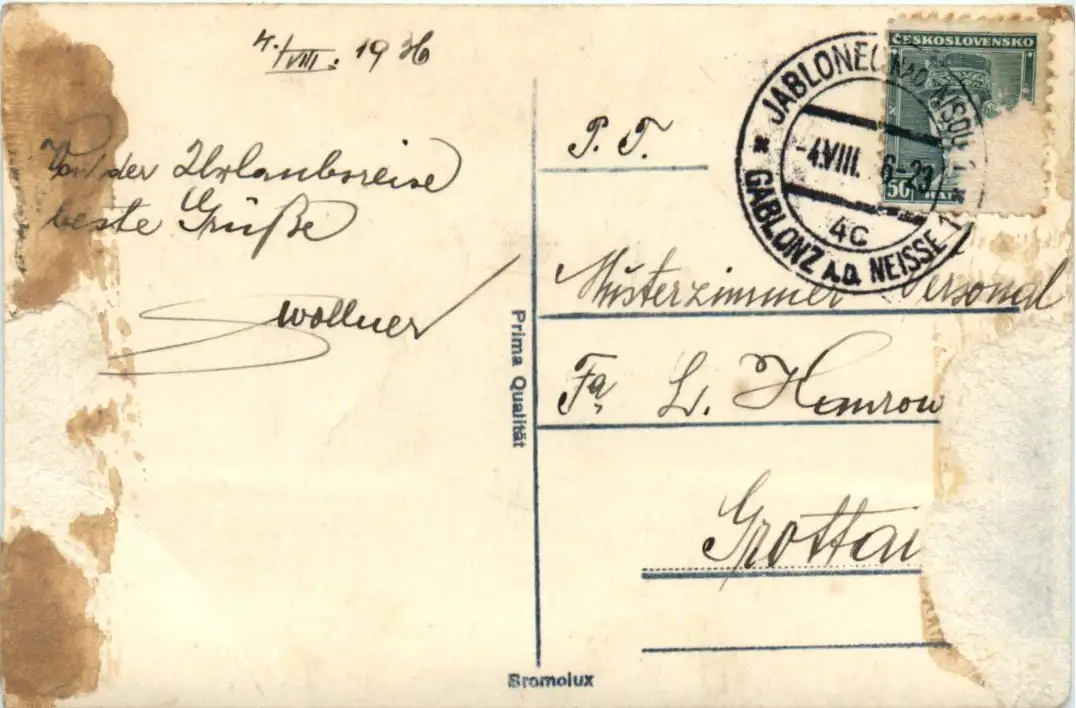 4./VIII. 1936
Von der Urlaubsreise
beste Grüße
Wollner
Prima Qualität
Bromolux
ČESKOSLOVENSKO
50
JABLONEC NAD NISOU 1
-4.VIII. 36-23
4C
GABLONZ A.D. NEISSE 1
P. T.
Musterzimmer Personal
Fa.
Grottau